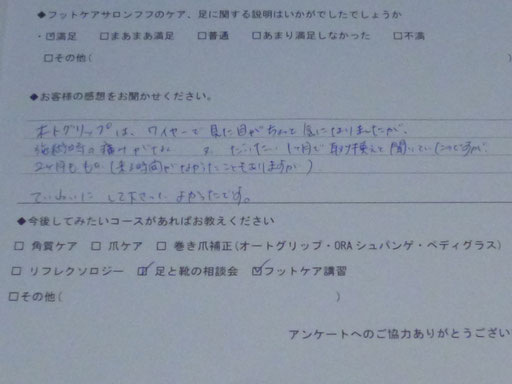 ◆フットケアサロンフフのケア、足に関する説明はいかがでしたでしょうか
・☑満足 □まあまあ満足 □普通 □あまり満足しなかった □不満
□その他( )
◆お客様の感想をお聞かせください。
オートグリップは、ワイヤーで見た目がちょっと気になりましたが、
施術時の痛みがなく だいたい1ヶ月で取り換えと聞いていたのですが
2ヶ月もち (来る時間がなかったこともありますが)
ていねいにして下さって よかったです。
◆今後してみたいコースがあればお教えください
□ 角質ケア □ 爪ケア □ 巻き爪補正(オートグリップ・ORAシュパンゲ・ペディグラス)
□ リフレクソロジー ☑ 足と靴の相談会 ☑フットケア講習
□その他( )
アンケートへのご協力ありがとうござい